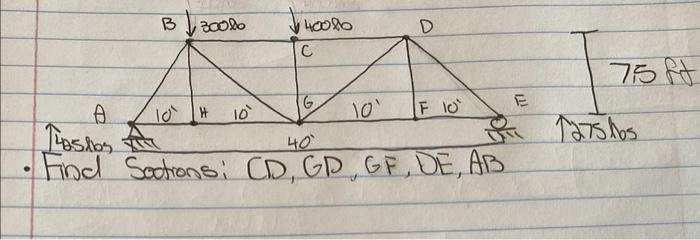 B 300lb 400lb D
C
7.5 ft
A 10' H 10' G 10' F 10' E
↑425lbs 40' ↑275lbs
• Find Sections: CD, GD, GF, DE, AB